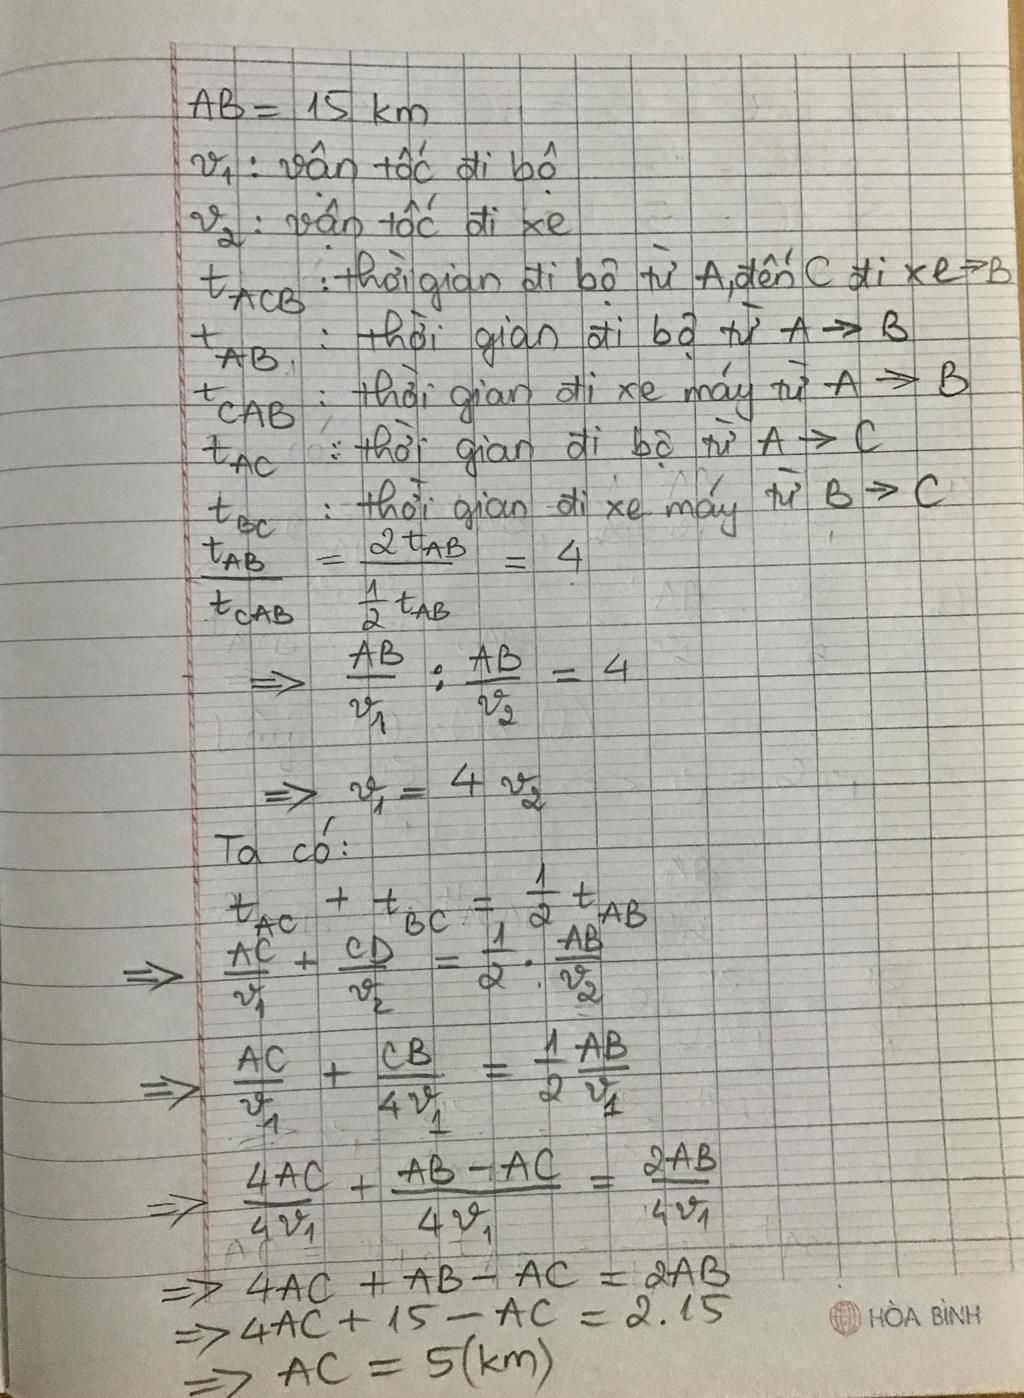 AB = 15 km
v₁ : vận tốc đi bộ
v₂ : vận tốc đi xe
t_ACB : thời gian đi bộ từ A, đến C đi xe → B
t_AB : thời gian đi bộ từ A → B
t_CAB : thời gian đi xe máy từ A → B
t_AC : thời gian đi bộ từ A → C
t_BC : thời gian đi xe máy từ B → C
t_AB / t_CAB = 2t_AB / (1/2 t_AB) = 4
=> AB/v₁ : AB/v₂ = 4
=> v₁ = 4 v₂
Ta có:
t_AC + t_BC = 1/2 t_AB
=> AC/v₁ + CD/v₂ = 1/2 . AB/v₂
=> AC/v₁ + CB/4v₁ = 1/2 AB/v₁
=> 4AC/4v₁ + (AB - AC)/4v₁ = 2AB/4v₁
=> 4AC + AB - AC = 2AB
=> 4AC + 15 - AC = 2.15
=> AC = 5(km)
HÒA BÌNH